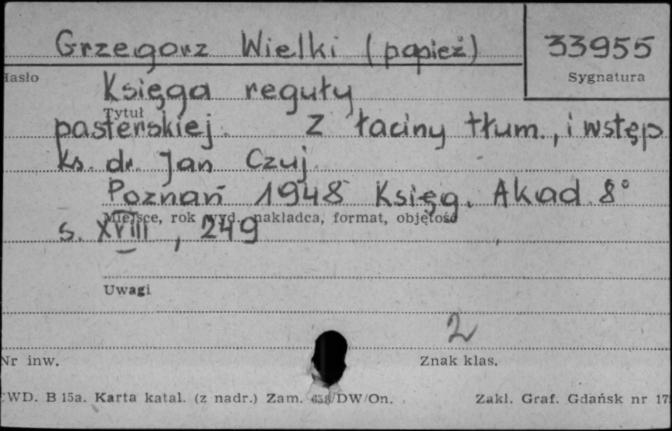 Grzegorz Wielki (papież)
33955
Hasło
Sygnatura
Księga reguły
Tytuł
pasterskiej. Z łaciny tłum., i wstęp
Ks. dr. Jan Czuj.
Poznań 1948 Księg. Akad. 8°
Miejsce, rok wyd., nakładca, format, objętość
s. XVIII, 249
Uwagi
2
Nr inw.
Znak klas.
CWD. B 15a. Karta katal. (z nadr.) Zam. 638/DW/On.
Zakł. Graf. Gdańsk nr 17